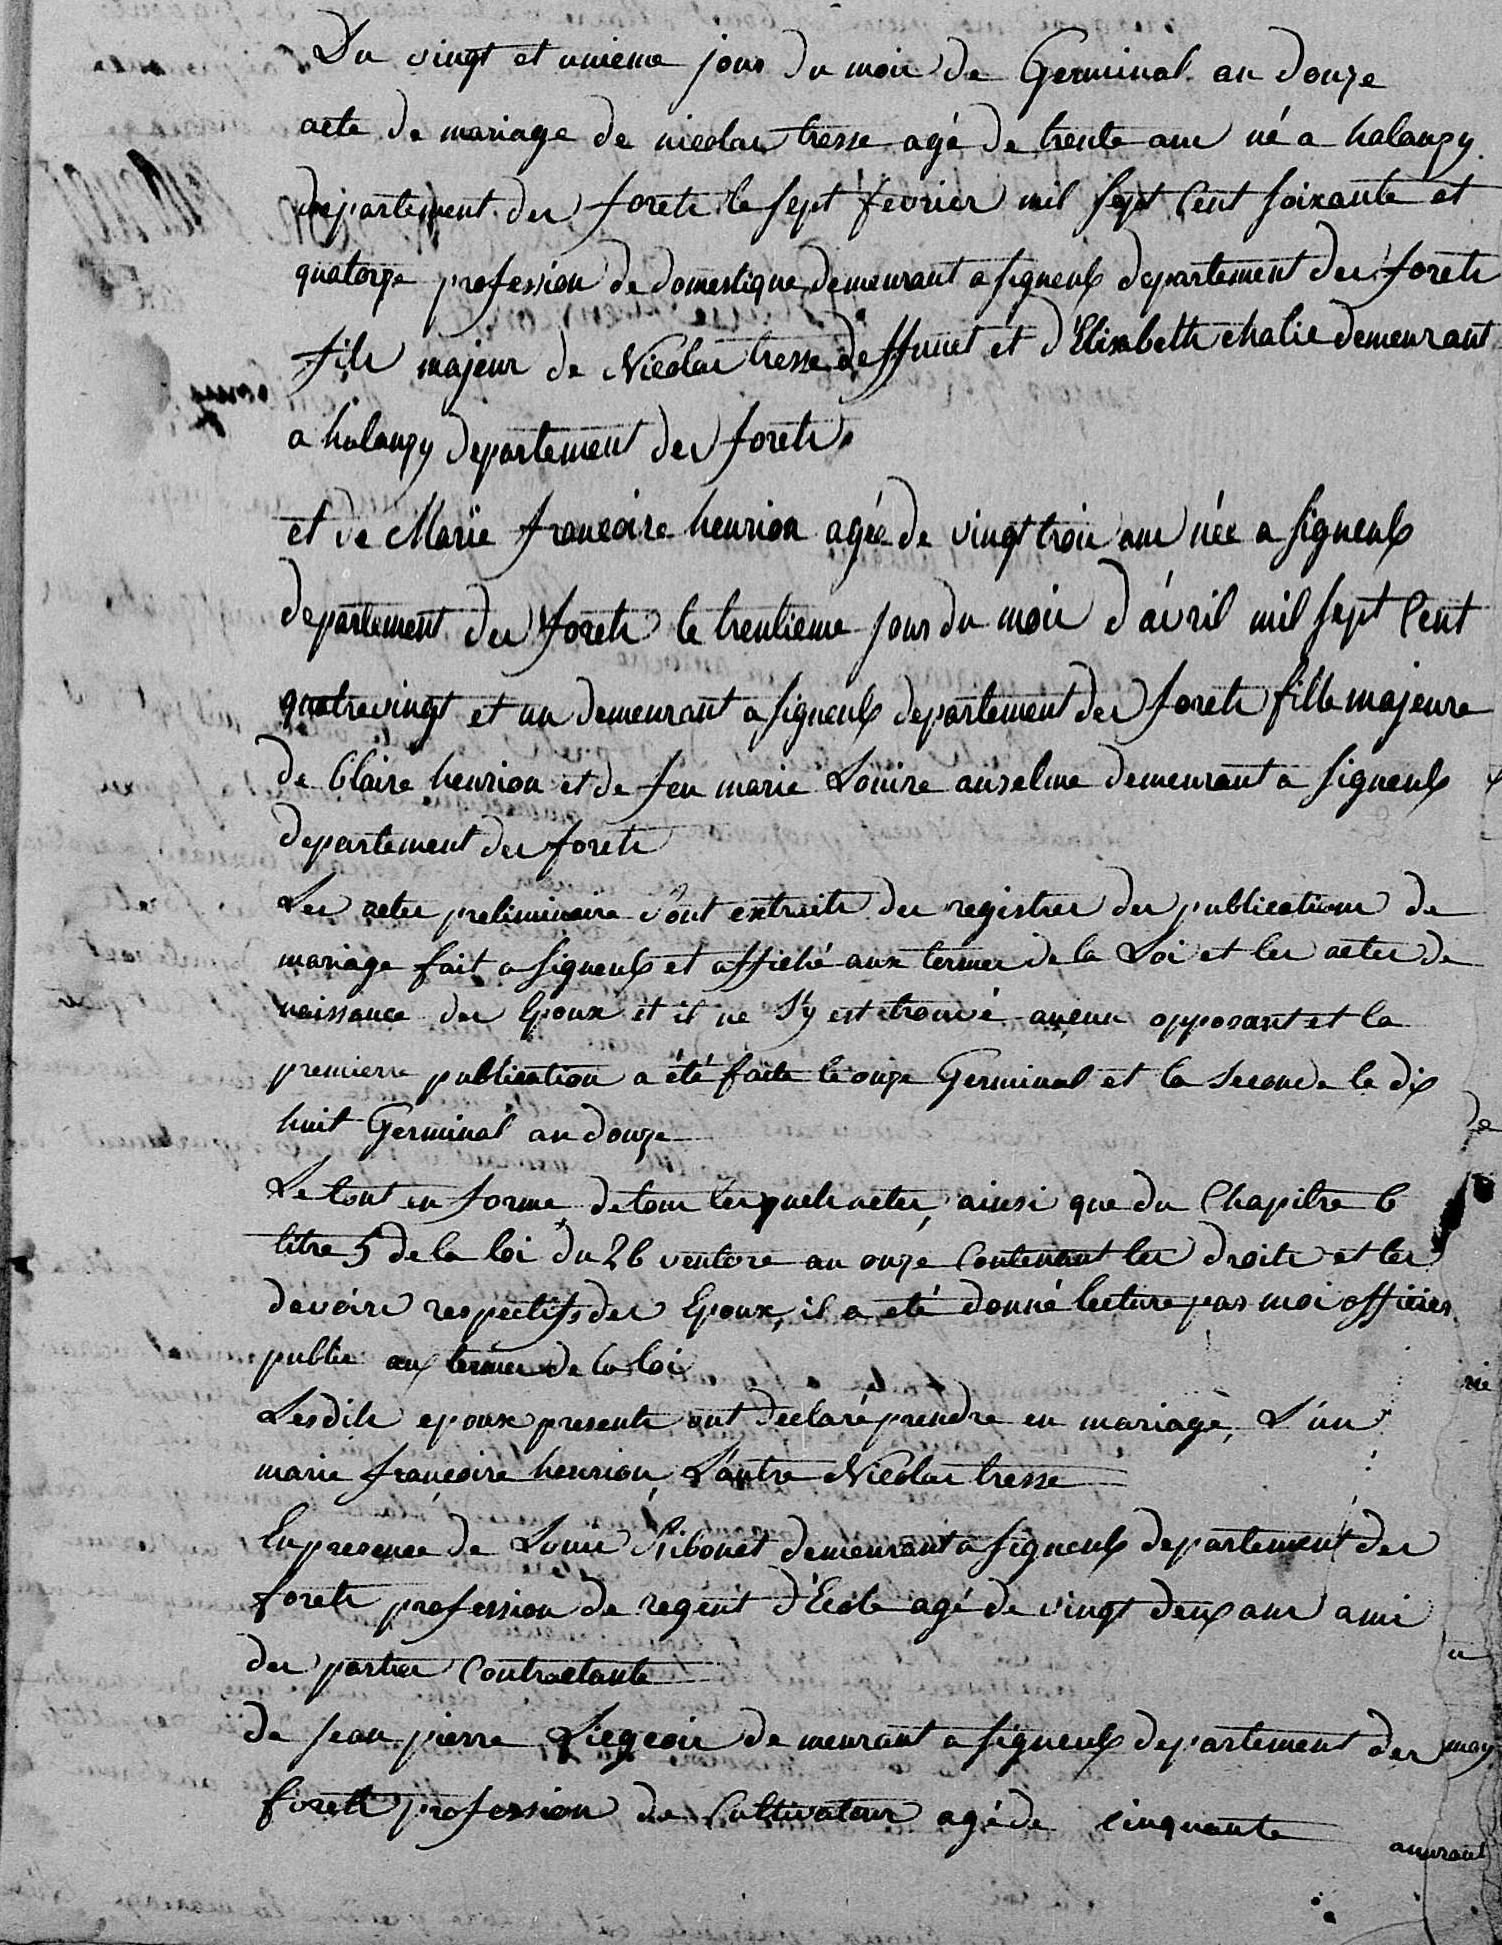 Du vingt et unieme jour du mois de Germinal an douze
acte de mariage de nicolas tresse agé de trente ans né a halanzy
departement des forets le sept fevrier mil sept Cent soixante et
quatorze profession de domestique demeurant a signeulx departement des forets
fils majeur de Nicolas tresse deffunct et d'Elisabeth chalie demeurant
a halanzy departement des forets
et de Marie francoise henrion agée de vingt trois ans née a signeulx
departement des forets le trentieme jour du mois d'avril mil sept Cent
quatrevingt et un demeurant a signeulx departement des forets fille majeure
de Claire henrion et de feu marie Louise anselme demeurant a signeulx
departement des forets
Les actes preliminaire sont extraits des registres des publications de
mariage fait a signeulx et affiché aux termes de la Loi et les actes de
naissance des Epoux et il ne s'y est trouvé aucun opposant et la
premierre publication a été faite le onze Germinal et la seconde le dix
huit Germinal an douze
Le tout en forme, de tous lesquels actes, ainsi que du Chapitre 6
titre 5 de la loi du 26 ventose an onze Contenant les droits et les
devoirs respectifs des Epoux, il a eté donné lecture par moi officier
public aux termes de la loi
Lesdits epoux presents ont declaré prendre en mariage, L'un
marie françoise henrion, L'autre Nicolas tresse
En presence de Louis Ribonet demeurant a signeulx departement des
forets profession de regent d'Ecole agé de vingt deux ans ami
des parties Contractante
de jean pierre Liegeois demeurant a signeulx departement des
forets profession de Cultivateur agé de cinquante